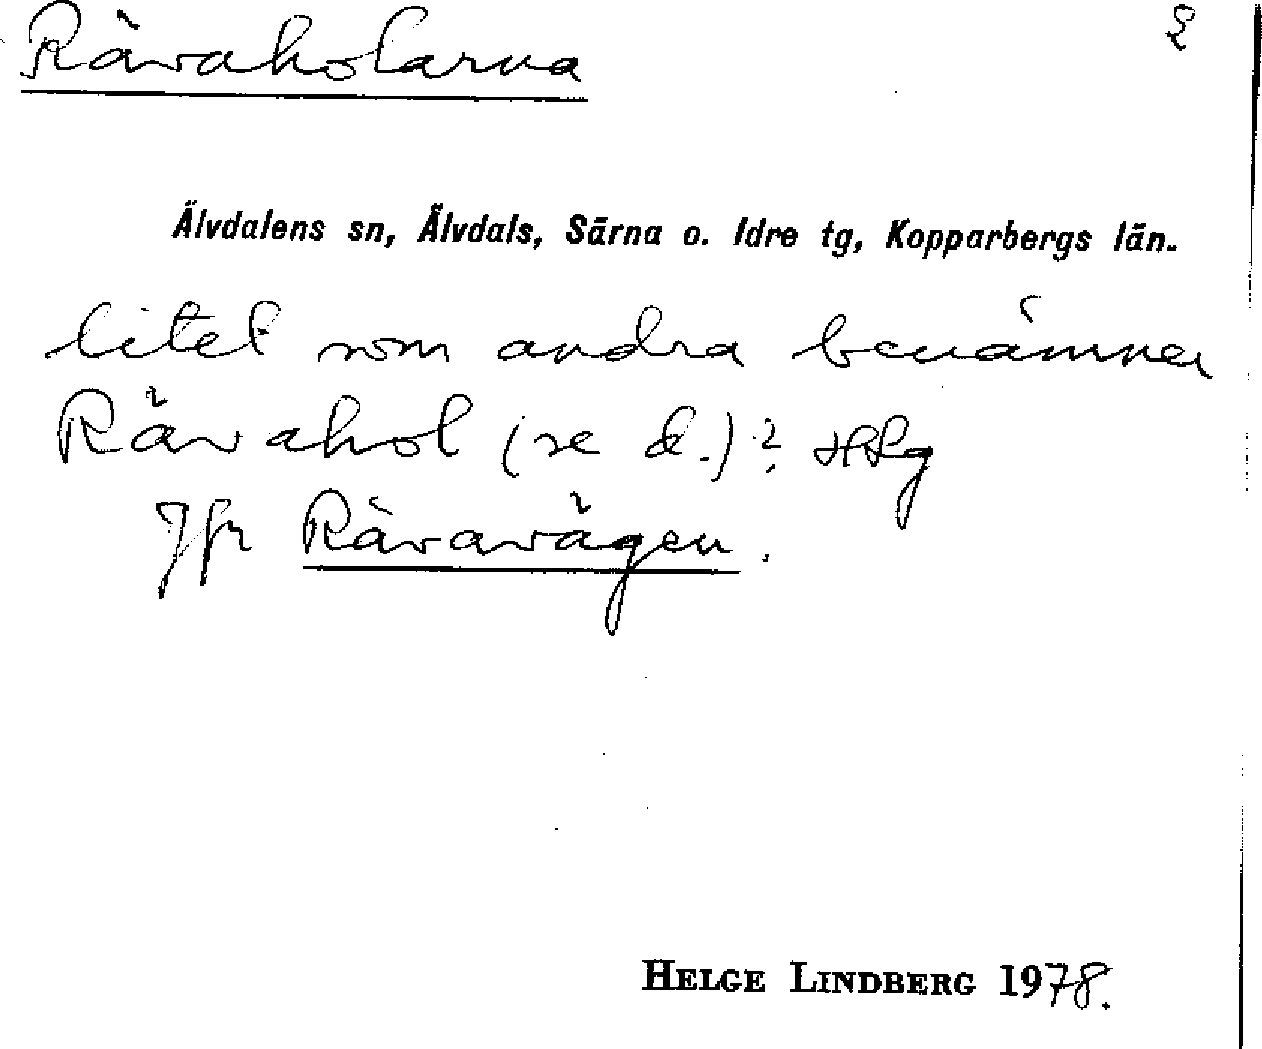 Rävaholarna 2
Älvdalens sn, Älvdals, Särna o. Idre tg, Kopparbergs län.
litet som andra benämner
Rävahol (se d.)? HLg
Jfr Rävavägen.
HELGE LINDBERG 1978.